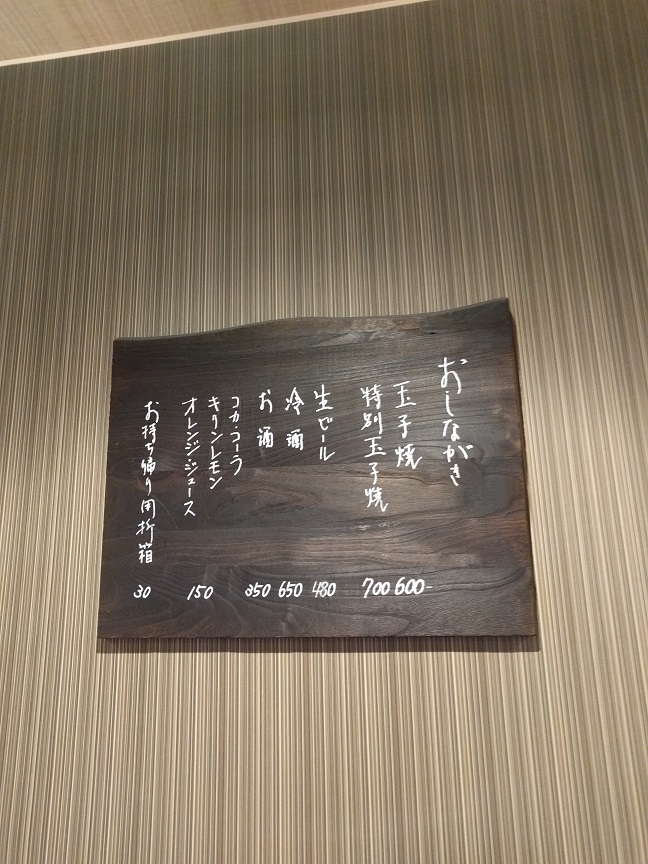 おしながき
玉子焼 600-
特別玉子焼 700
生ビール 480
冷酒 650
お酒 350
コカ・コーラ
キリンレモン
オレンジ・ジュース 150
お持ち帰り用折箱 30